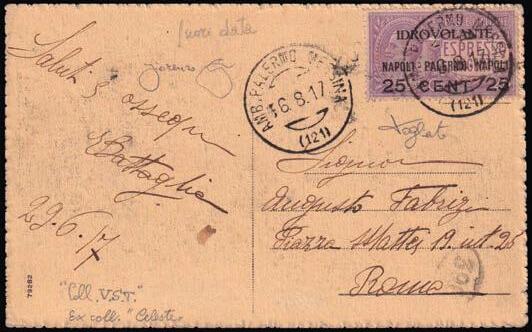 fuori data
IDROVOLANTE
ESPRESSO
NAPOLI - PALERMO - NAPOLI
25 CENT. 25
AMB. PALERMO MESSINA
16.8.17
(121)
PALERMO
(121)
Saluti e ossequi
Battaglia
29.6.17
Signor
Augusto Fabrizi
Piazza Mattei 19. int. 25
Roma
79282
"Coll. V.S.T."
Ex coll. "Celeste"